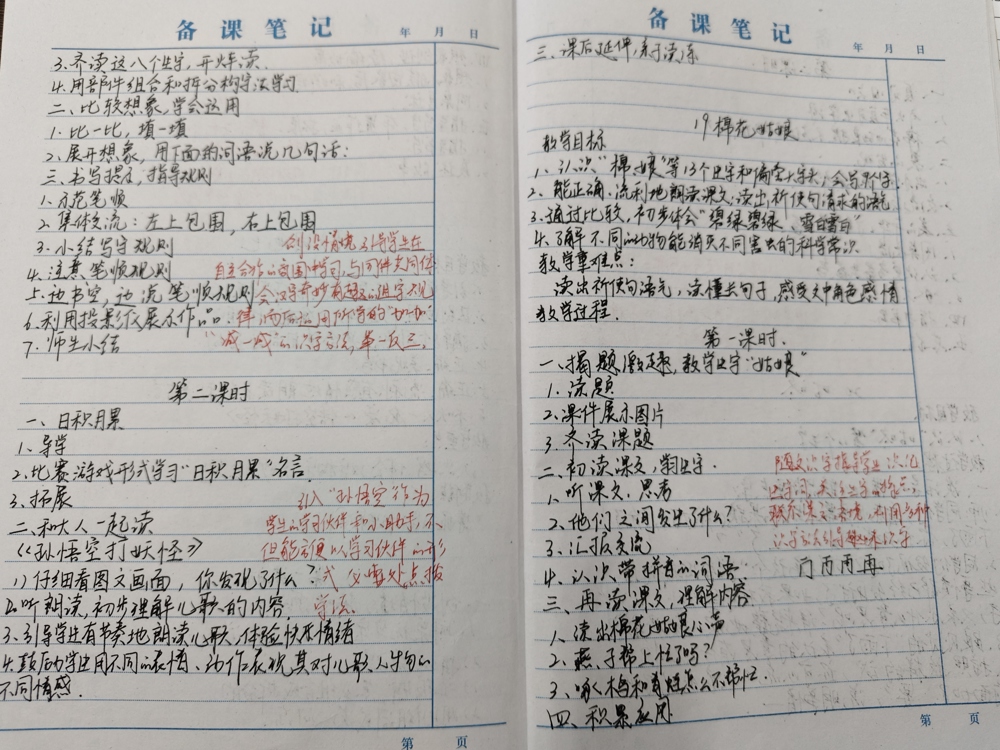 备课笔记
年 月 日
3.齐读这八个生字,开火车读.
4.用部件组合和拆分构字法学习
二、比较想象,学会运用
1.比一比,填一填
2.展开想象,用下面的词语说几句话:
三.书写提示,指导规则
1.示范笔顺
2.集体交流:左上包围,右上包围
3.小结写字规则
创设情境引导学生在
4.注意笔顺规则
自主合作的氛围中学习,与同伴共同体
5.边书空,边说笔顺规则
会汉字奇妙有趣的组字规
6.利用投影仪展示作品.
律,而后运用所学的"加一加"
7.师生小结
"减一减"的识字方法,举一反三.
第二课时
一、日积月累
1.导学
2.比赛游戏形式学习"日积月累"名言.
3.拓展
引入"孙悟空"作为
二、和大人一起读
学生的学习伙伴和小助手,不
《孙悟空打妖怪》
但能以学习伙伴的形
1)仔细看图文画面,你发现了什么?
式处点拨
2.听朗读,初步理解儿歌的内容.
学法.
3.引导学生有节奏地朗读儿歌,体验快乐情绪
4.鼓励学生用不同的表情、动作表现其对儿歌人物的
不同情感.
第 页
备课笔记
年 月 日
三.课后延伸,亲子读
19棉花姑娘
教学目标
1.认识"棉、娘"等13个生字和偏旁,会写7个字.
2.能正确、流利地朗读课文,读出祈使句请求的语气
3.通过比较,初步体会"碧绿碧绿、雪白雪白"
4.了解不同的动物能消灭不同害虫的科学常识
教学重难点:
读出祈使句语气,读懂长句子,感受文中角色感情
教学过程.
第一课时.
一、揭题激趣,教学生字"姑娘"
1.读题
2.课件展示图片
3.齐读课题
二、初读课文,学习生字.
随文识字指导学生识记
1.听课文,思考
生字词,关注生字的特点,
2.他们之间发生了什么?
联系课文语境,利用多种
3.汇报交流
识字方法引导趣味识字
4.认识带拼音的词语
冂 丙 再
三、再读课文,理解内容
1.读出棉花姑娘心声
2.燕子帮上忙了吗?
3.啄木鸟和青蛙怎么不帮忙.
四、积累应用
第 页